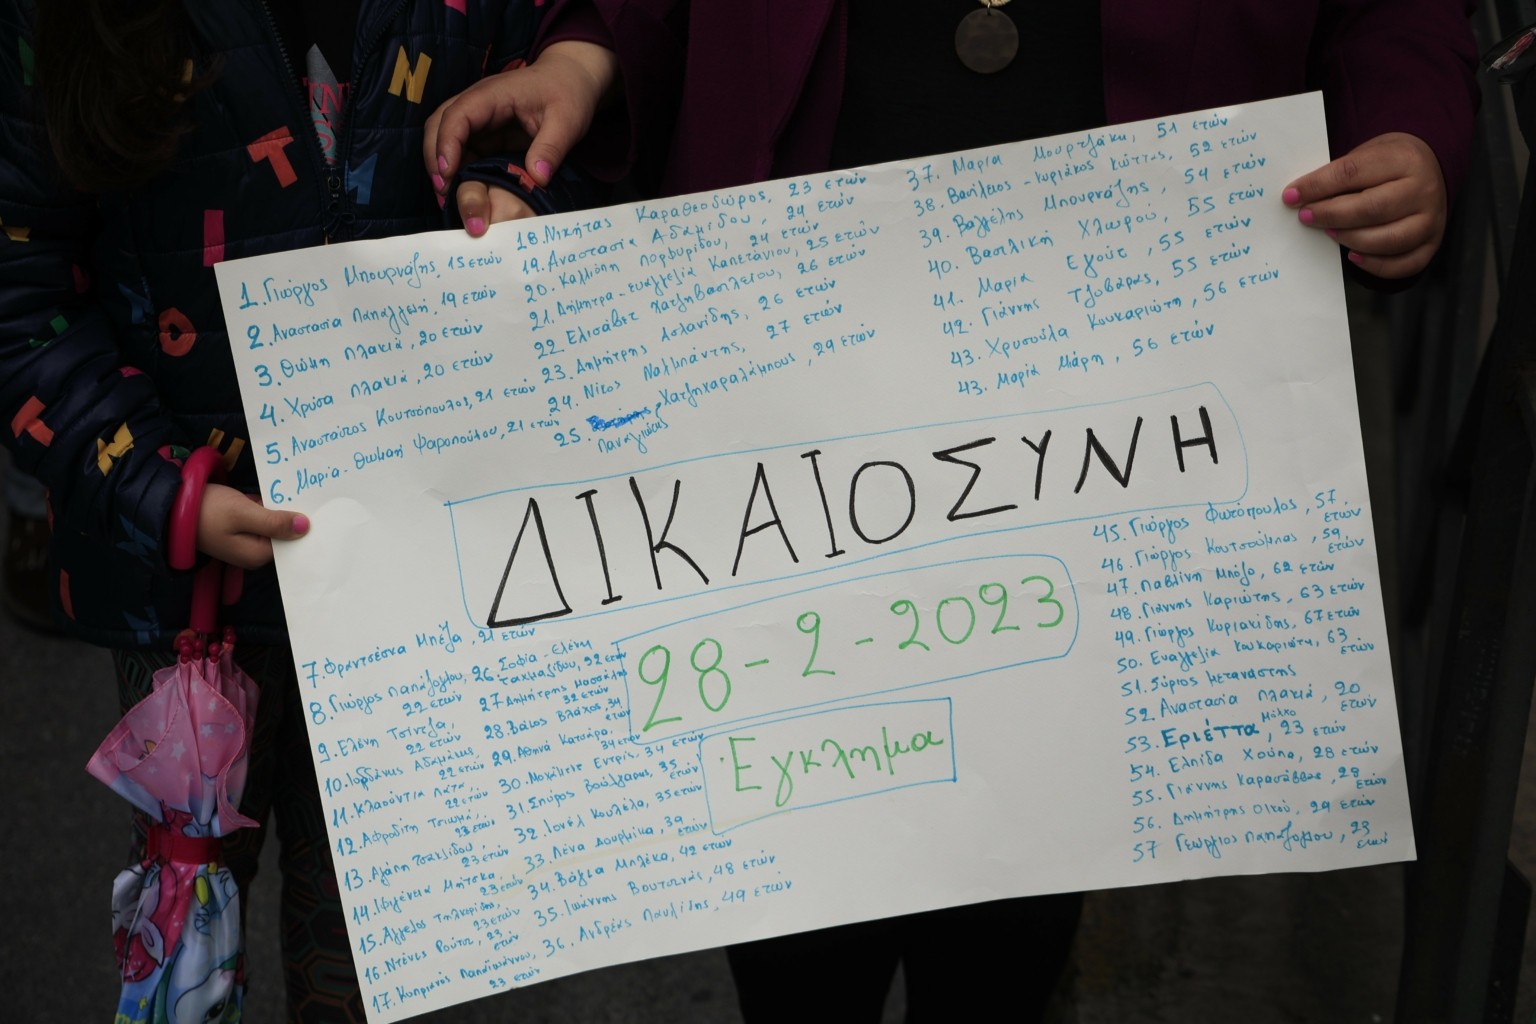 1. Γιώργος Μπουρνάζης, 15 ετών
2. Αναστασία Παπαγγελή, 19 ετών
3. Θώμη Πλακιά, 20 ετών
4. Χρύσα Πλακιά, 20 ετών
5. Αναστάσιος Κουτσόπουλος, 21 ετών
6. Μαρία-Θωμαή Ψαροπούλου, 21 ετών
18. Νικήτας Καραθεοδώρος, 23 ετών
19. Αναστασία Αδαμίδου, 24 ετών
20. Καλλιόπη Πορφυρίδου, 24 ετών
21. Δήμητρα-Ευαγγελία Καπετάνιου, 25 ετών
22. Ελισάβετ Χατζηβασιλείου, 26 ετών
23. Δημήτρης Ασλανίδης, 26 ετών
24. Νίκος Ναλμπάντης, 27 ετών
25. Χατζηχαραλάμπους, 29 ετών
Παναγιώτης
37. Μαρία Μουρτζάκη, 51 ετών
38. Βασίλειος-Κυριάκος Κώττας, 52 ετών
39. Βαγγέλης Μπουρνάζης, 54 ετών
40. Βασιλική Χλωρού, 55 ετών
41. Μαρία Εγούτ, 55 ετών
42. Γιάννης Τζοβάρας, 55 ετών
43. Χρυσούλα Κουκαριώτη, 56 ετών
43. Μαρία Μάρη, 56 ετών
ΔΙΚΑΙΟΣΥΝΗ
28-2-2023
Έγκλημα
7. Φραντσέσκα Μπέζα, 21 ετών
8. Γιώργος Παπάζογλου,
22 ετών
9. Ελένη Τσίντζα,
22 ετών
10. Ιορδάνης Αδαμάκης
22 ετών
11. Κλαούντια Λάτα,
22 ετών
12. Αφροδίτη Τσιωμά,
23 ετών
13. Αγάπη Τσακλίδου,
23 ετών
14. Ιφιγένεια Μήτσκα,
23 ετών
15. Άγγελος Τηλκερίδης,
23 ετών
16. Ντένις Ρούτσι, 23
ετών
17. Κυπριανός Παπαϊωάννου,
23 ετών
26. Σοφία-Ελένη
Ταχμαζίδου, 22 ετών
27 Δημήτρης Μασσάλης
32 ετών
28. Βάιος Βλάχος, 34
ετών
29. Αθηνά Κατσάρα,
34 ετών
30. Μοχάμεντ Εντρίς, 34 ετών
31. Σπύρος Βούλγαρης, 35
ετών
32. Ιονέλ Κουλέλα, 35 ετών
33. Λένα Δουρμίκα, 39
ετών
34. Βάγια Μπλέκα, 42 ετών
35. Ιωάννης Βουτσινάς, 48 ετών
36. Ανδρέας Παυλίδης, 49 ετών
45. Γιώργος Φωτόπουλος, 57
ετών
46. Γιώργος Κουτσούμπας, 59
ετών
47. Παβλίνη Μπόζο, 62 ετών
48. Γιάννης Καριώτης, 63 ετών
49. Γιώργος Κυριακίδης, 67 ετών
50. Ευαγγελία Κουκαριώτη, 63
ετών
51. Σύριος Μετανάστης
52. Αναστασία Πλακιά, 20
ετών
53. Εριέττα Μόλχο, 23 ετών
54. Ελπίδα Χούπα, 28 ετών
55. Γιάννης Καρασάββας, 28
ετών
56. Δημήτρης Οικού, 29 ετών
57 Γεώργιος Παπάζογλου, 23
ετών